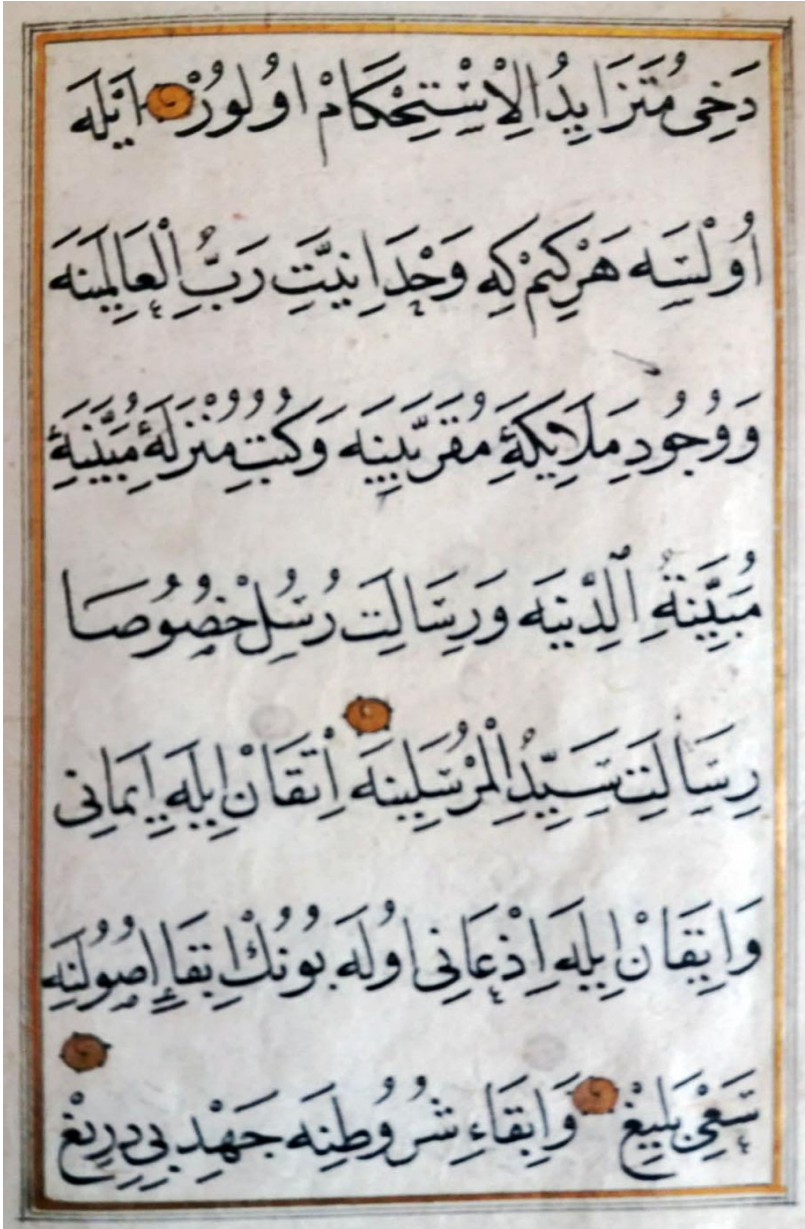 دَخِى مُتَزَايِدُ الِاسْتِحْكَامْ اوُلوُرْ اَيْلَه
اُولْسَه هَرْكِيمْ كِه وَحْدَانِيَّتِ رَبُّ الْعَالَمِينَه
وَوُجُودِ مَلَايِكَۀِ مُقَرَّبِينَه وَكُتُبِ مُنْزَلَۀِ مُبَيَّنِيۀِ
مُبَيِّنَةِ الدِّنْيَه وَرِسَالَتِ رُسُلْ خُصُوصَا
رِسَالَتِ سَيِّدِ الْمُرْسَلِينَه اِتْقَانْ اِيلَه اِيمَانِى
وَاِيقَانْ اِيلَه اِذْعَانِى اوُلَه بوُنُكْ اِبْقَاءِ اصُولُنَه
سَعْىِ بَلِيغْ وَاِبْقَاءِ شُرُوطِنَه جَهْدِ بِى دِرِيغْ